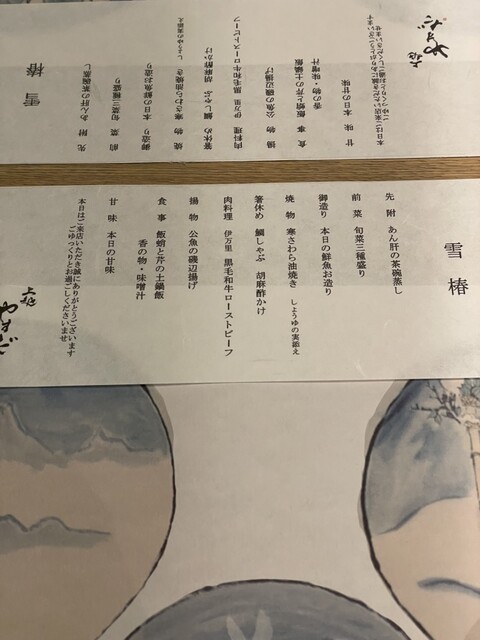 雪椿
先附 あん肝の茶碗蒸し
前菜 旬菜三種盛り
御造り 本日の鮮魚お造り
焼物 寒さわら油焼き しょうゆの実添え
箸休め 鯛しゃぶ 胡麻酢かけ
肉料理 伊万里 黒毛和牛ローストビーフ
揚物 公魚の磯辺揚げ
食事 飯蛸と芹の土鍋飯
香の物・味噌汁
甘味 本日の甘味
本日はご来店いただき誠にありがとうございます
ごゆっくりとお過ごしくださいませ
上越 やすだ
雪椿
先附 あん肝の茶碗蒸し
前菜 旬菜三種盛り
御造り 本日の鮮魚お造り
焼物 寒さわら油焼き しょうゆの実添え
箸休め 鯛しゃぶ 胡麻酢かけ
肉料理 伊万里 黒毛和牛ローストビーフ
揚物 公魚の磯辺揚げ
食事 飯蛸と芹の土鍋飯
香の物・味噌汁
甘味 本日の甘味
本日はご来店いただき誠にありがとうございます
ごゆっくりとお過ごしくださいませ
上越 やすだ